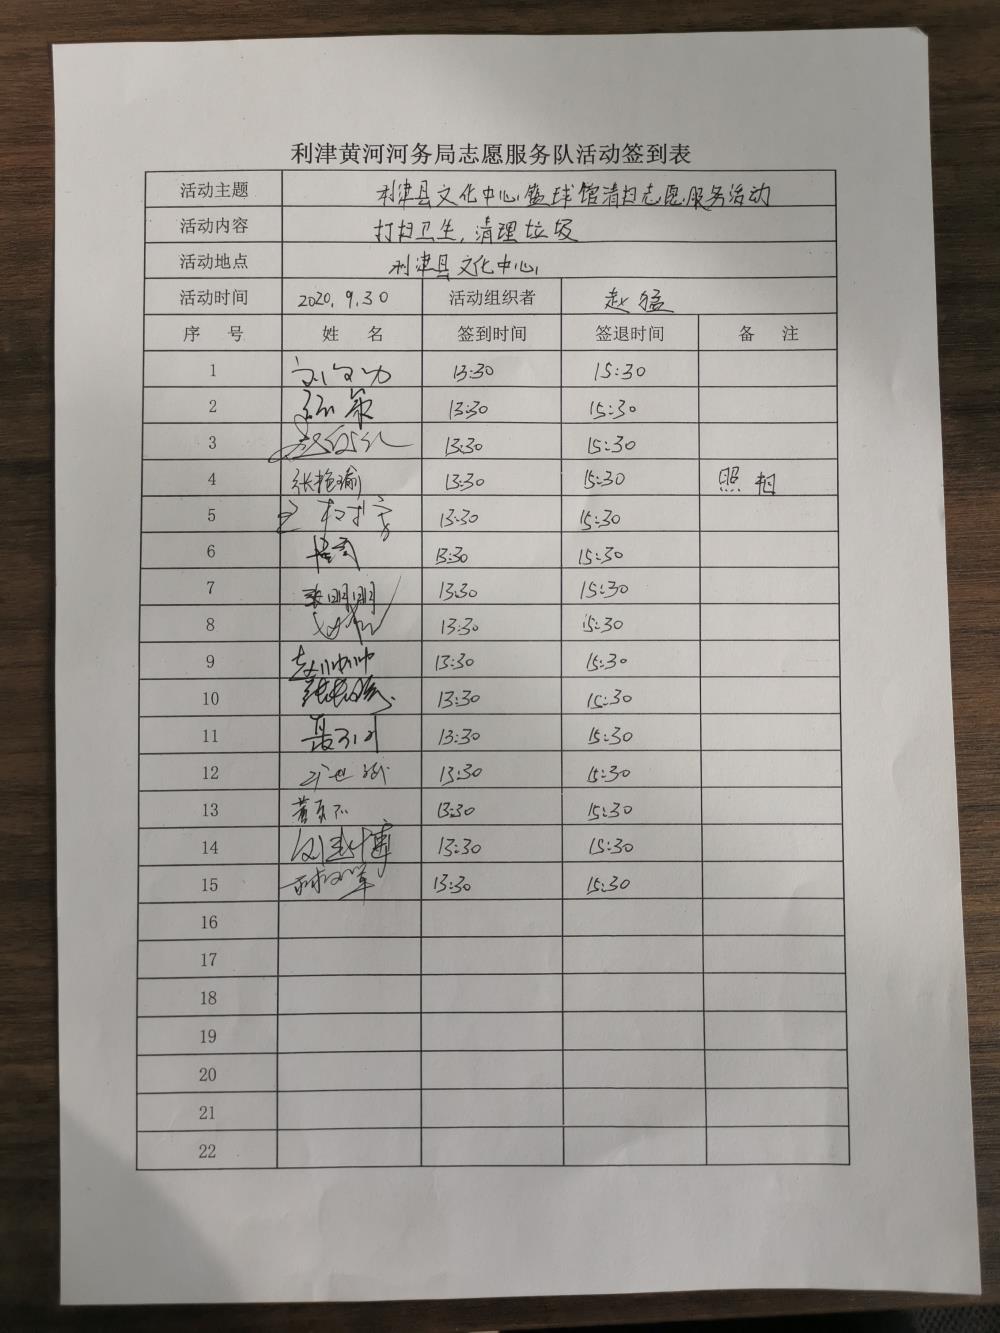 利津黄河河务局志愿服务队活动签到表
活动主题 利津县文化中心篮球馆清扫志愿服务活动
活动内容 打扫卫生,清理垃圾
活动地点 利津县文化中心
活动时间 2020.9.30 活动组织者 赵猛
序 号 姓 名 签到时间 签退时间 备 注
1 13:30 15:30
2 13:30 15:30
3 13:30 15:30
4 张艳瑜 13:30 15:30 照相
5 13:30 15:30
6 13:30 15:30
7 张明明 13:30 15:30
8 13:30 15:30
9 赵帅帅 13:30 15:30
10 13:30 15:30
11 13:30 15:30
12 13:30 15:30
13 13:30 15:30
14 13:30 15:30
15 13:30 15:30
16
17
18
19
20
21
22